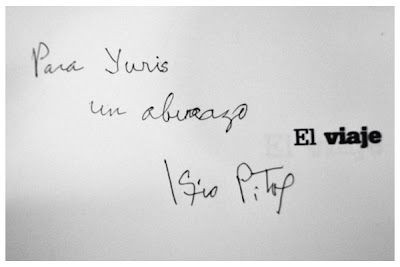 Para Yuris
un abrazo
El viaje
Sergio Pitol